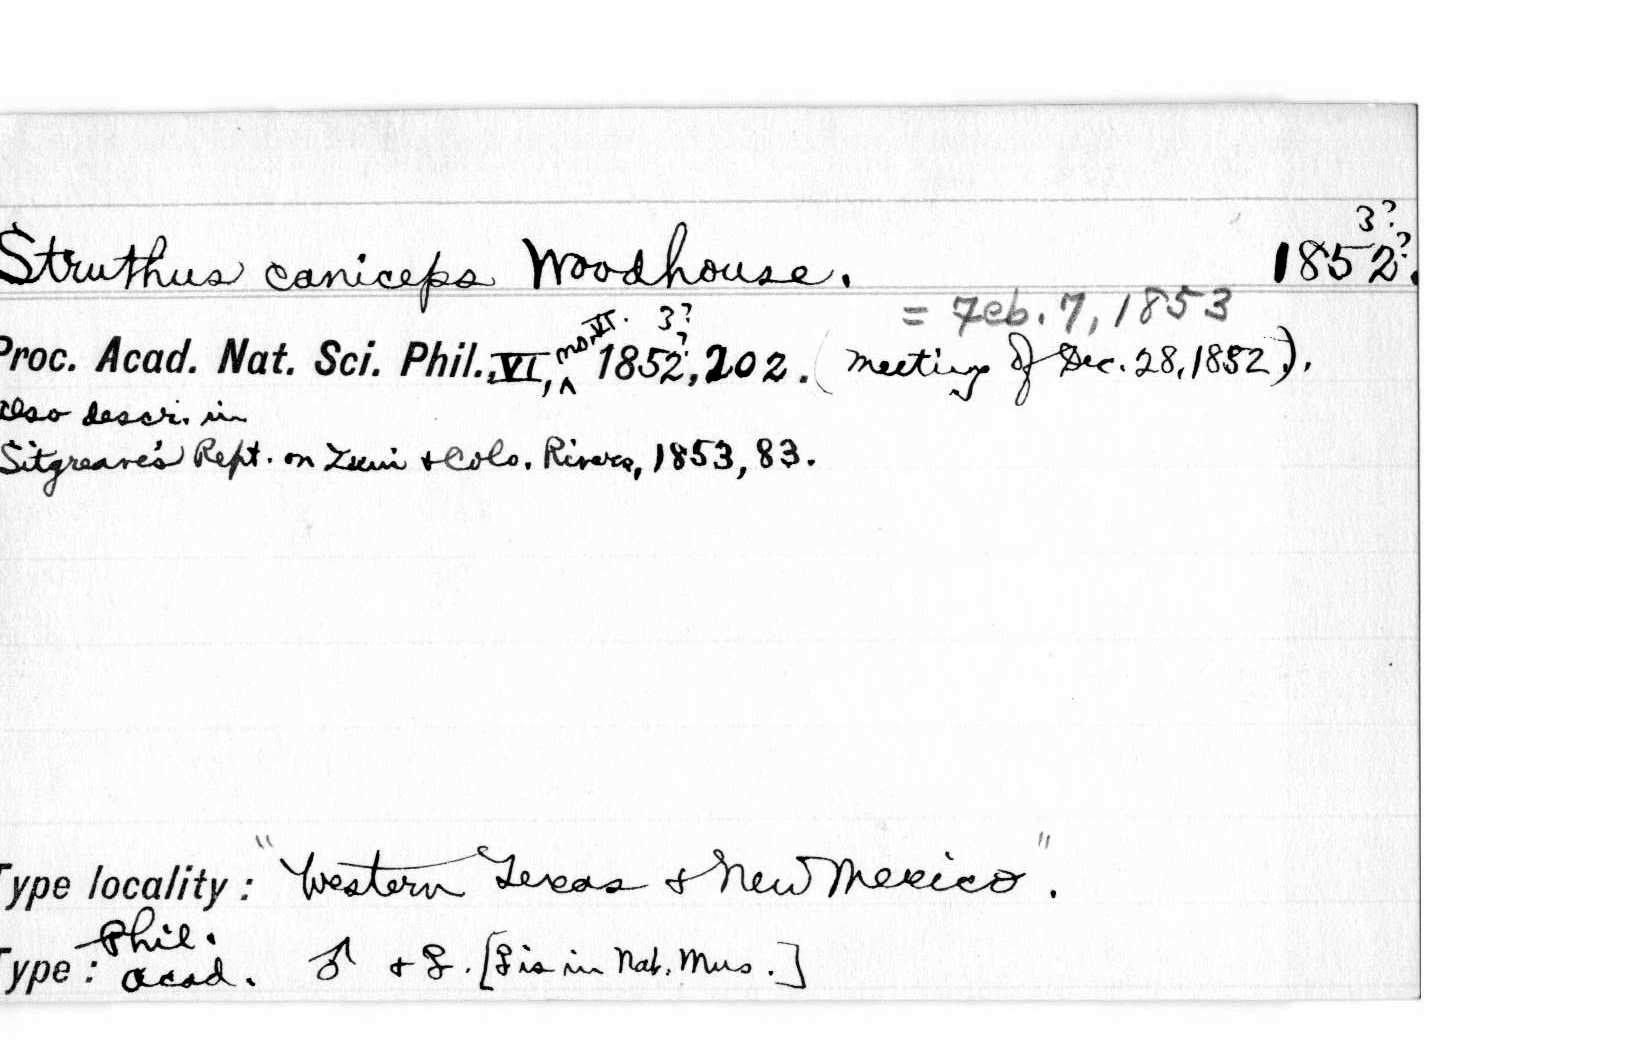 Struthus caniceps Woodhouse. 1852?.
3?
= Feb. 7, 1853
Proc. Acad. Nat. Sci. Phil., VI, no. VI. 1852?, 202. (meeting of Dec. 28, 1852).
3?
also descr. in
Sitgreave's Rept. on Zuni & Colo. Rivers, 1853, 83.
Type locality: "Western Texas & New Mexico".
Phil.
Type: Acad. ♂ & ♀. [♀ is in Nat. Mus.]